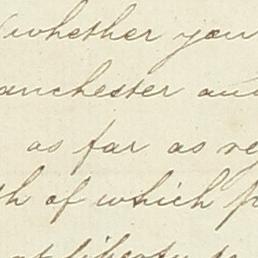 whether you
anchester and
as far as re
th of which
at liberty to